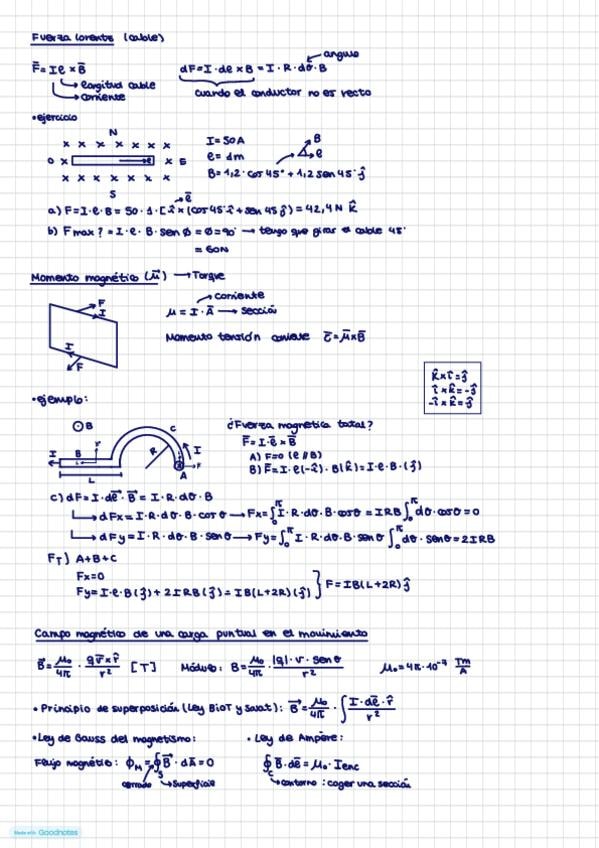 Fuerza lorentz (cable)
F̄ = I ē × B̄
→ longitud cable
→ corriente
dF = I · dē × B = I · R · dθ · B
angulo
cuando el conductor no es recto
• ejercicio
N
x x x x x x x
O x e x E
x x x x x x x
S
I = 50A
e = 1m
B = 1,2 · cos 45° + 1,2 sen 45° ĵ
B
e
a) F = I · e · B = 50 · 1 · [î × (cos 45 î + sen 45 ĵ) = 42,4 N k̂
ē
b) Fmax? = I · e · B · sen ∅ = ∅ = 90° → tengo que girar el cable 45°
= 60N
Momento magnético (μ⃗) → Torque
F
I
I
F
μ = I · Ā → sección
corriente
Momento tensión c̄ = μ̄ × B̄
k̂ × î = ĵ
î × k̂ = -ĵ
-î × k̂ = ĵ
• ejemplo:
⊙ B
I
B
L
C
R
I
A
¿Fuerza magnética total?
F̄ = I · ē × B̄
A) F = 0 (e ∥ B)
B) F = I · e (-î) · B (k̂) = I · e · B · (ĵ)
C) dF = I · dē · B̄ = I · R · dθ · B
→ dFx = I · R · dθ · B · cos θ → Fx = ∫₀^π I · R · dθ · B · cosθ = IRB ∫₀^π dθ · cosθ = 0
→ dFy = I · R · dθ · B · sen θ → Fy = ∫₀^π I · R · dθ · B · sen θ ∫₀^π dθ · senθ = 2IRB
F_T) A+B+C
Fx = 0
Fy = I · e · B (ĵ) + 2IRB (ĵ) = IB(L+2R)(ĵ) } F = IB(L+2R) ĵ
Campo magnético de una carga puntual en el movimiento
B⃗ = μ₀/4π · q v̄ × r̂ / r² [T]
Módulo: B = μ₀/4π · |q| · v · sen θ / r²
μ₀ = 4π · 10⁻⁷ Tm/A
• Principio de superposición (Ley BioT y Savat): B⃗ = μ₀/4π · ∫ I · dē · r̂ / r²
• Ley de Gauss del magnetismo:
• Ley de Ampère:
Flujo magnético: ϕ_M = ∮_S B⃗ · dĀ = 0
cerrado → superficie
∮_C B̄ · dē = μ₀ · Ienc
→ contorno : coger una sección
Made with Goodnotes